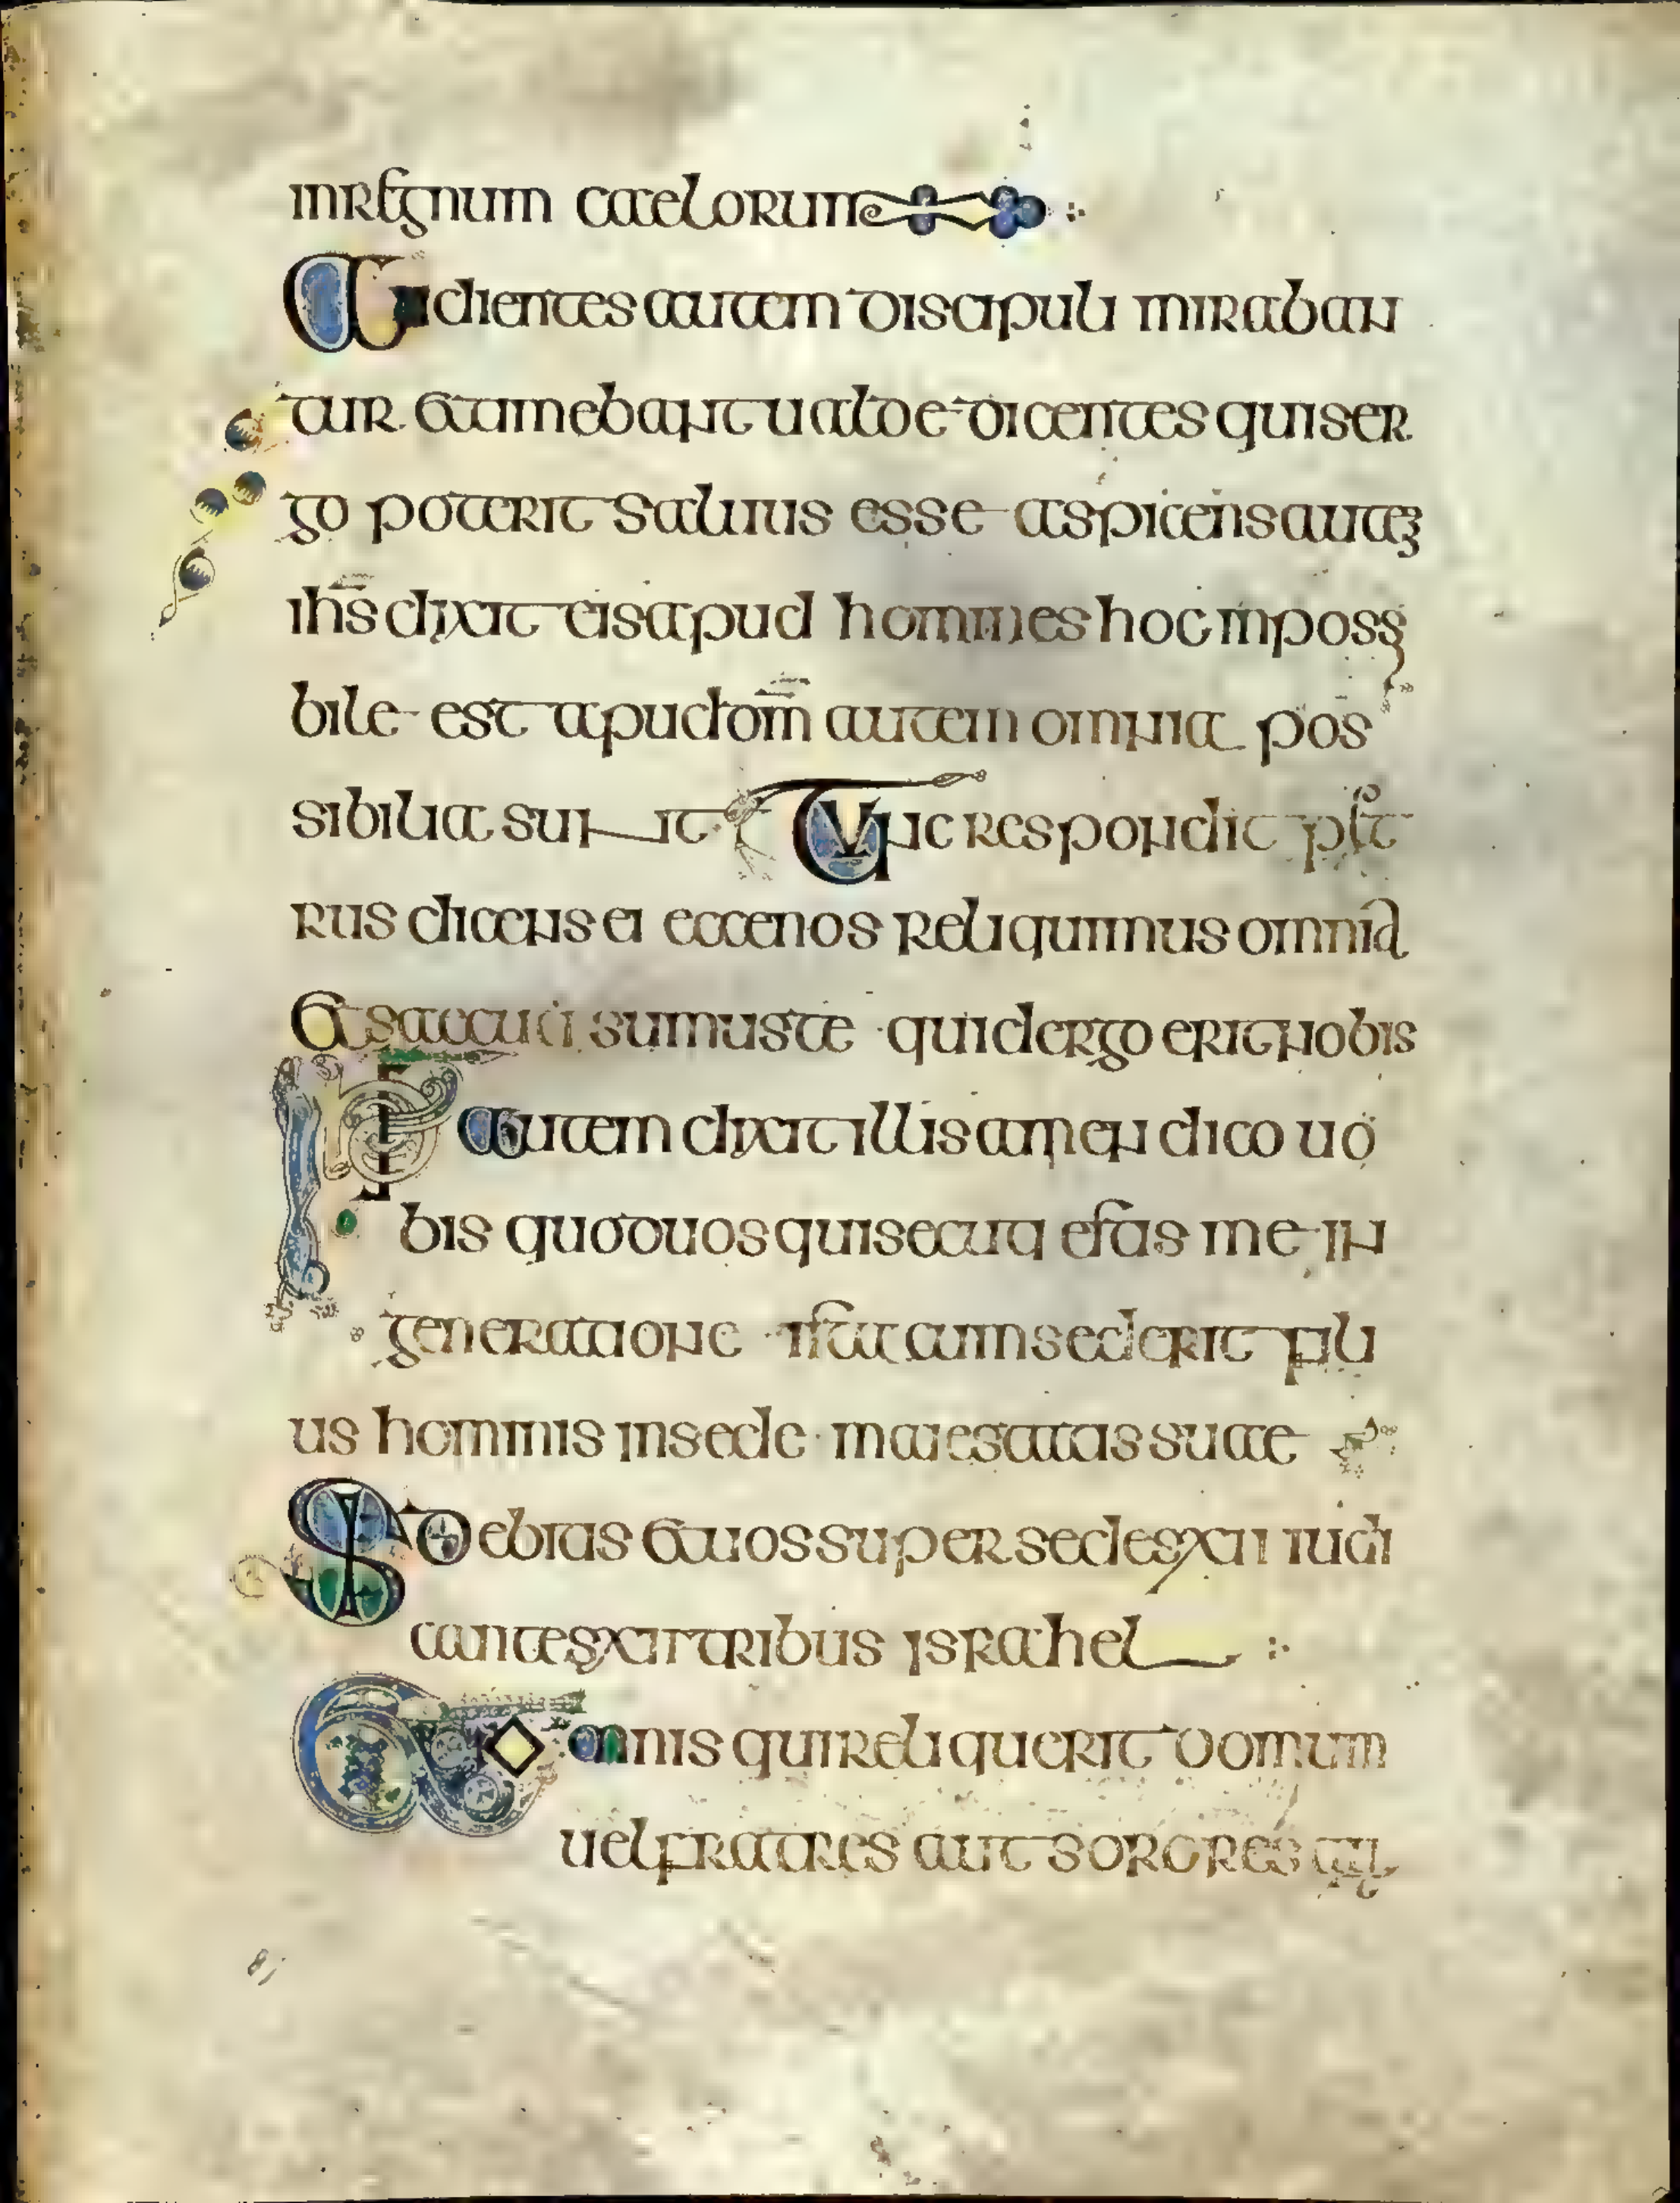 in regnum caelorum
Audientes autem discipuli miraban
tur et timebant ualde dicentes quis er
go poterit saluus esse aspiciens autem
ihs dixit eis apud homines hoc inpossi
bile est apud dm autem omnia pos
sibilia sunt Tunc respondit pet
rus dicens ei ecce nos reliquimus omnia
et saecuti sumus te quid ergo erit nobis
Ihs autem dixit illis amen dico uo
bis quod uos qui secuti estis me in
generatione ista cum sederit fili
us hominis in sede maiestatis suae
Sedebitis et uos super sedes xii iudi
cantes xii tribus israhel
Et omnis qui reliquerit domum
uel fratres aut sorores aut